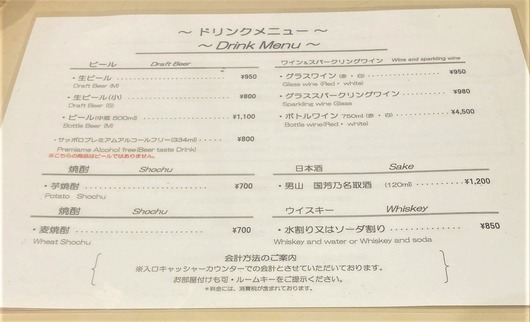 ～ ドリンクメニュー ～
～ Drink Menu ～
ビール Draft Beer
・生ビール ¥950
Draft Beer (M)
・生ビール(小) ¥800
Draft Beer (S)
・ビール(中瓶 500ml) ¥1,100
Bottle Beer (M)
・サッポロプレミアムアルコールフリー(334ml) ¥800
Premiame Alcohol free(Beer taste Drink)
※こちらの商品はビールではありません。
焼酎 Shochu
・芋焼酎 ¥700
Potato Shochu
焼酎 Shochu
・麦焼酎 ¥700
Wheat Shochu
ワイン&スパークリングワイン Wine and sparkling wine
・グラスワイン (赤・白) ¥950
Glass wine (Red・white)
・グラススパークリングワイン ¥980
Sparkling wine Glass
・ボトルワイン 750ml (赤・白) ¥4,500
Bottle wine(Red・white)
日本酒 Sake
・男山 国芳乃名取酒 (120ml) ¥1,200
ウイスキー Whiskey
・水割り又はソーダ割り ¥850
Whiskey and water or Whiskey and soda
会計方法のご案内
※入口キャッシャーカウンターでの会計とさせていただいております。
お部屋付けも可・ルームキーをご提示ください。
*料金には、消費税が含まれております。